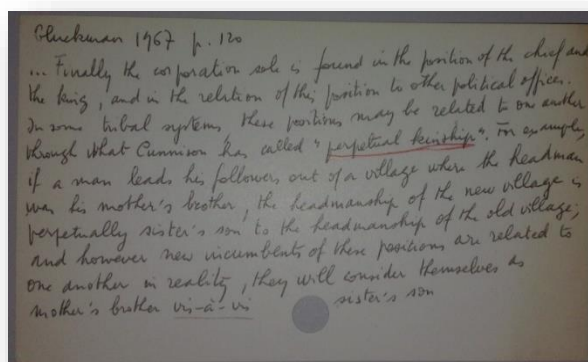 Gluckman 1967 p. 120
... Finally the corporation sole is found in the position of the chief and
the king, and in the relation of this position to other political offices.
In some tribal systems, these positions may be related to one another
through what Cunnison has called "perpetual kinship". For example,
if a man leads his followers out of a village where the headman
was his mother's brother, the headmanship of the new village is
perpetually sister's son to the headmanship of the old village;
and however new incumbents of these positions are related to
one another in reality, they will consider themselves as
mother's brother vis-à-vis sister's son